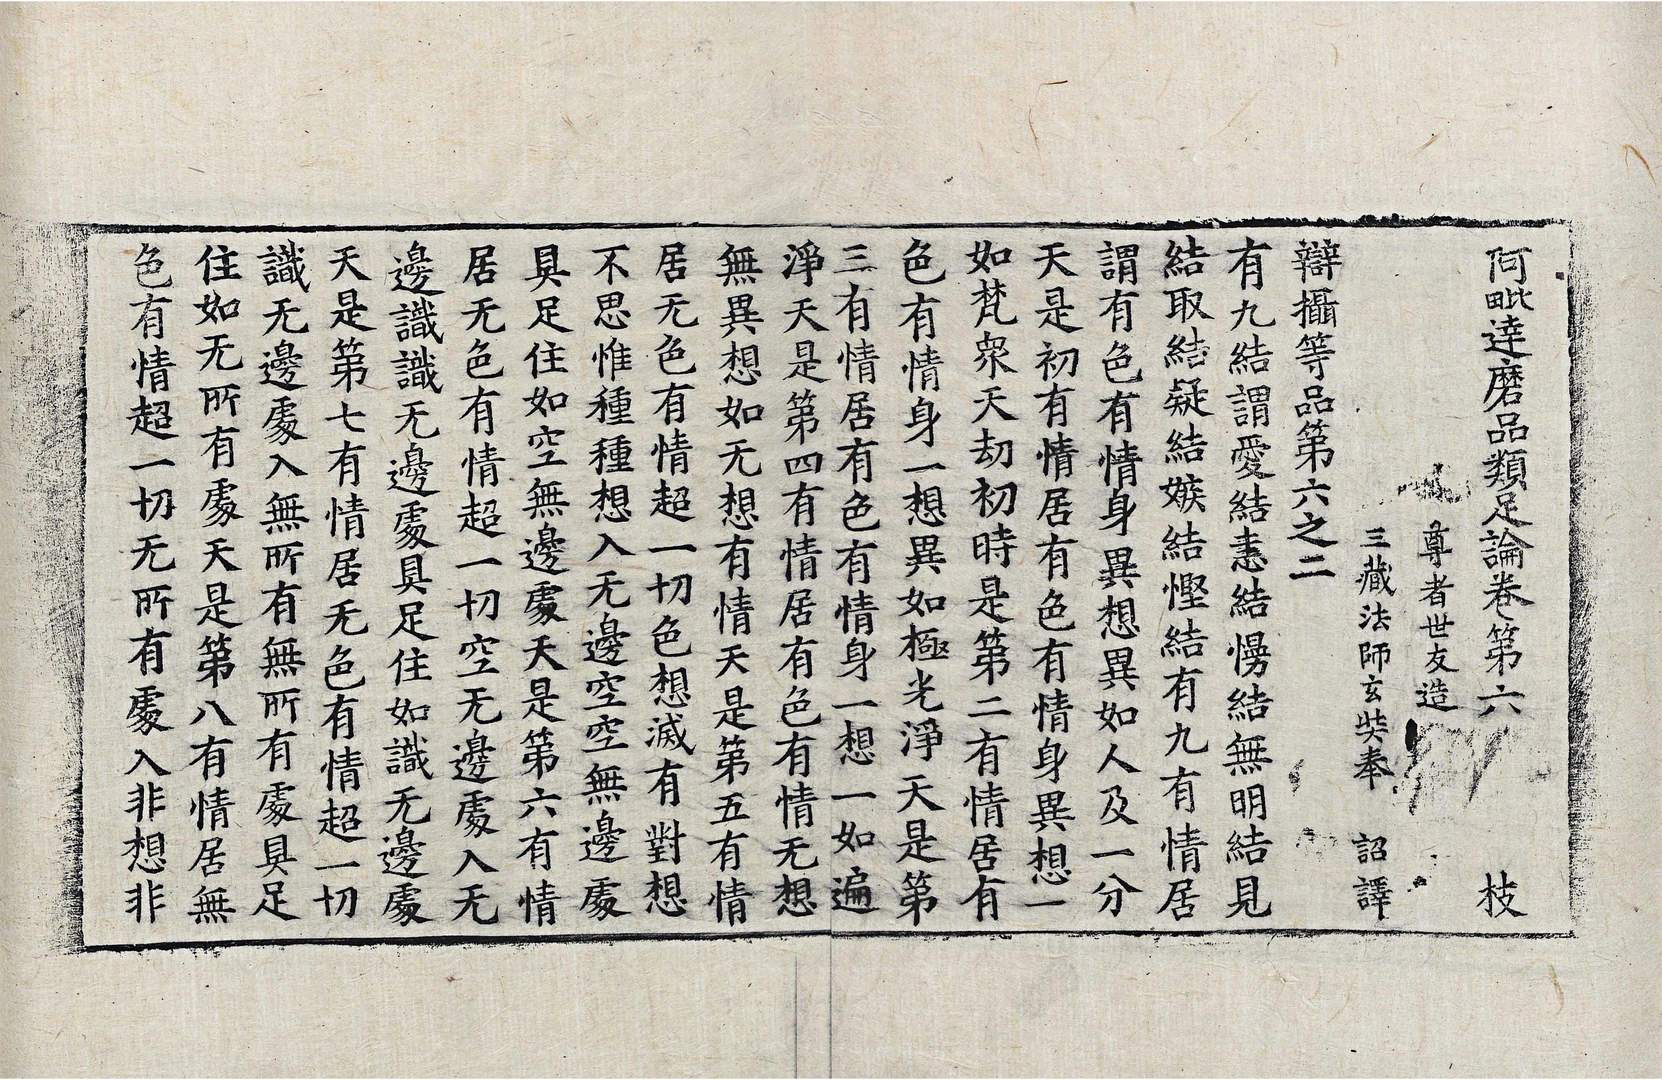 阿毗達磨品類足論卷第六 枝
尊者世友造
三藏法師玄奘奉 詔譯
辯攝等品第六之二
有九結謂愛結恚結慢結無明結見
結取結疑結嫉結慳結有九有情居
謂有色有情身異想異如人及一分
天是初有情居有色有情身異想一
如梵衆天劫初時是第二有情居有
色有情身一想異如極光淨天是第
三有情居有色有情身一想一如遍
淨天是第四有情居有色有情无想
無異想如无想有情天是第五有情
居无色有情超一切色想滅有對想
不思惟種種想入无邊空空無邊處
具足住如空無邊處天是第六有情
居无色有情超一切空无邊處入无
邊識識无邊處具足住如識无邊處
天是第七有情居无色有情超一切
識无邊處入無所有無所有處具足
住如无所有處天是第八有情居無
色有情超一切无所有處入非想非